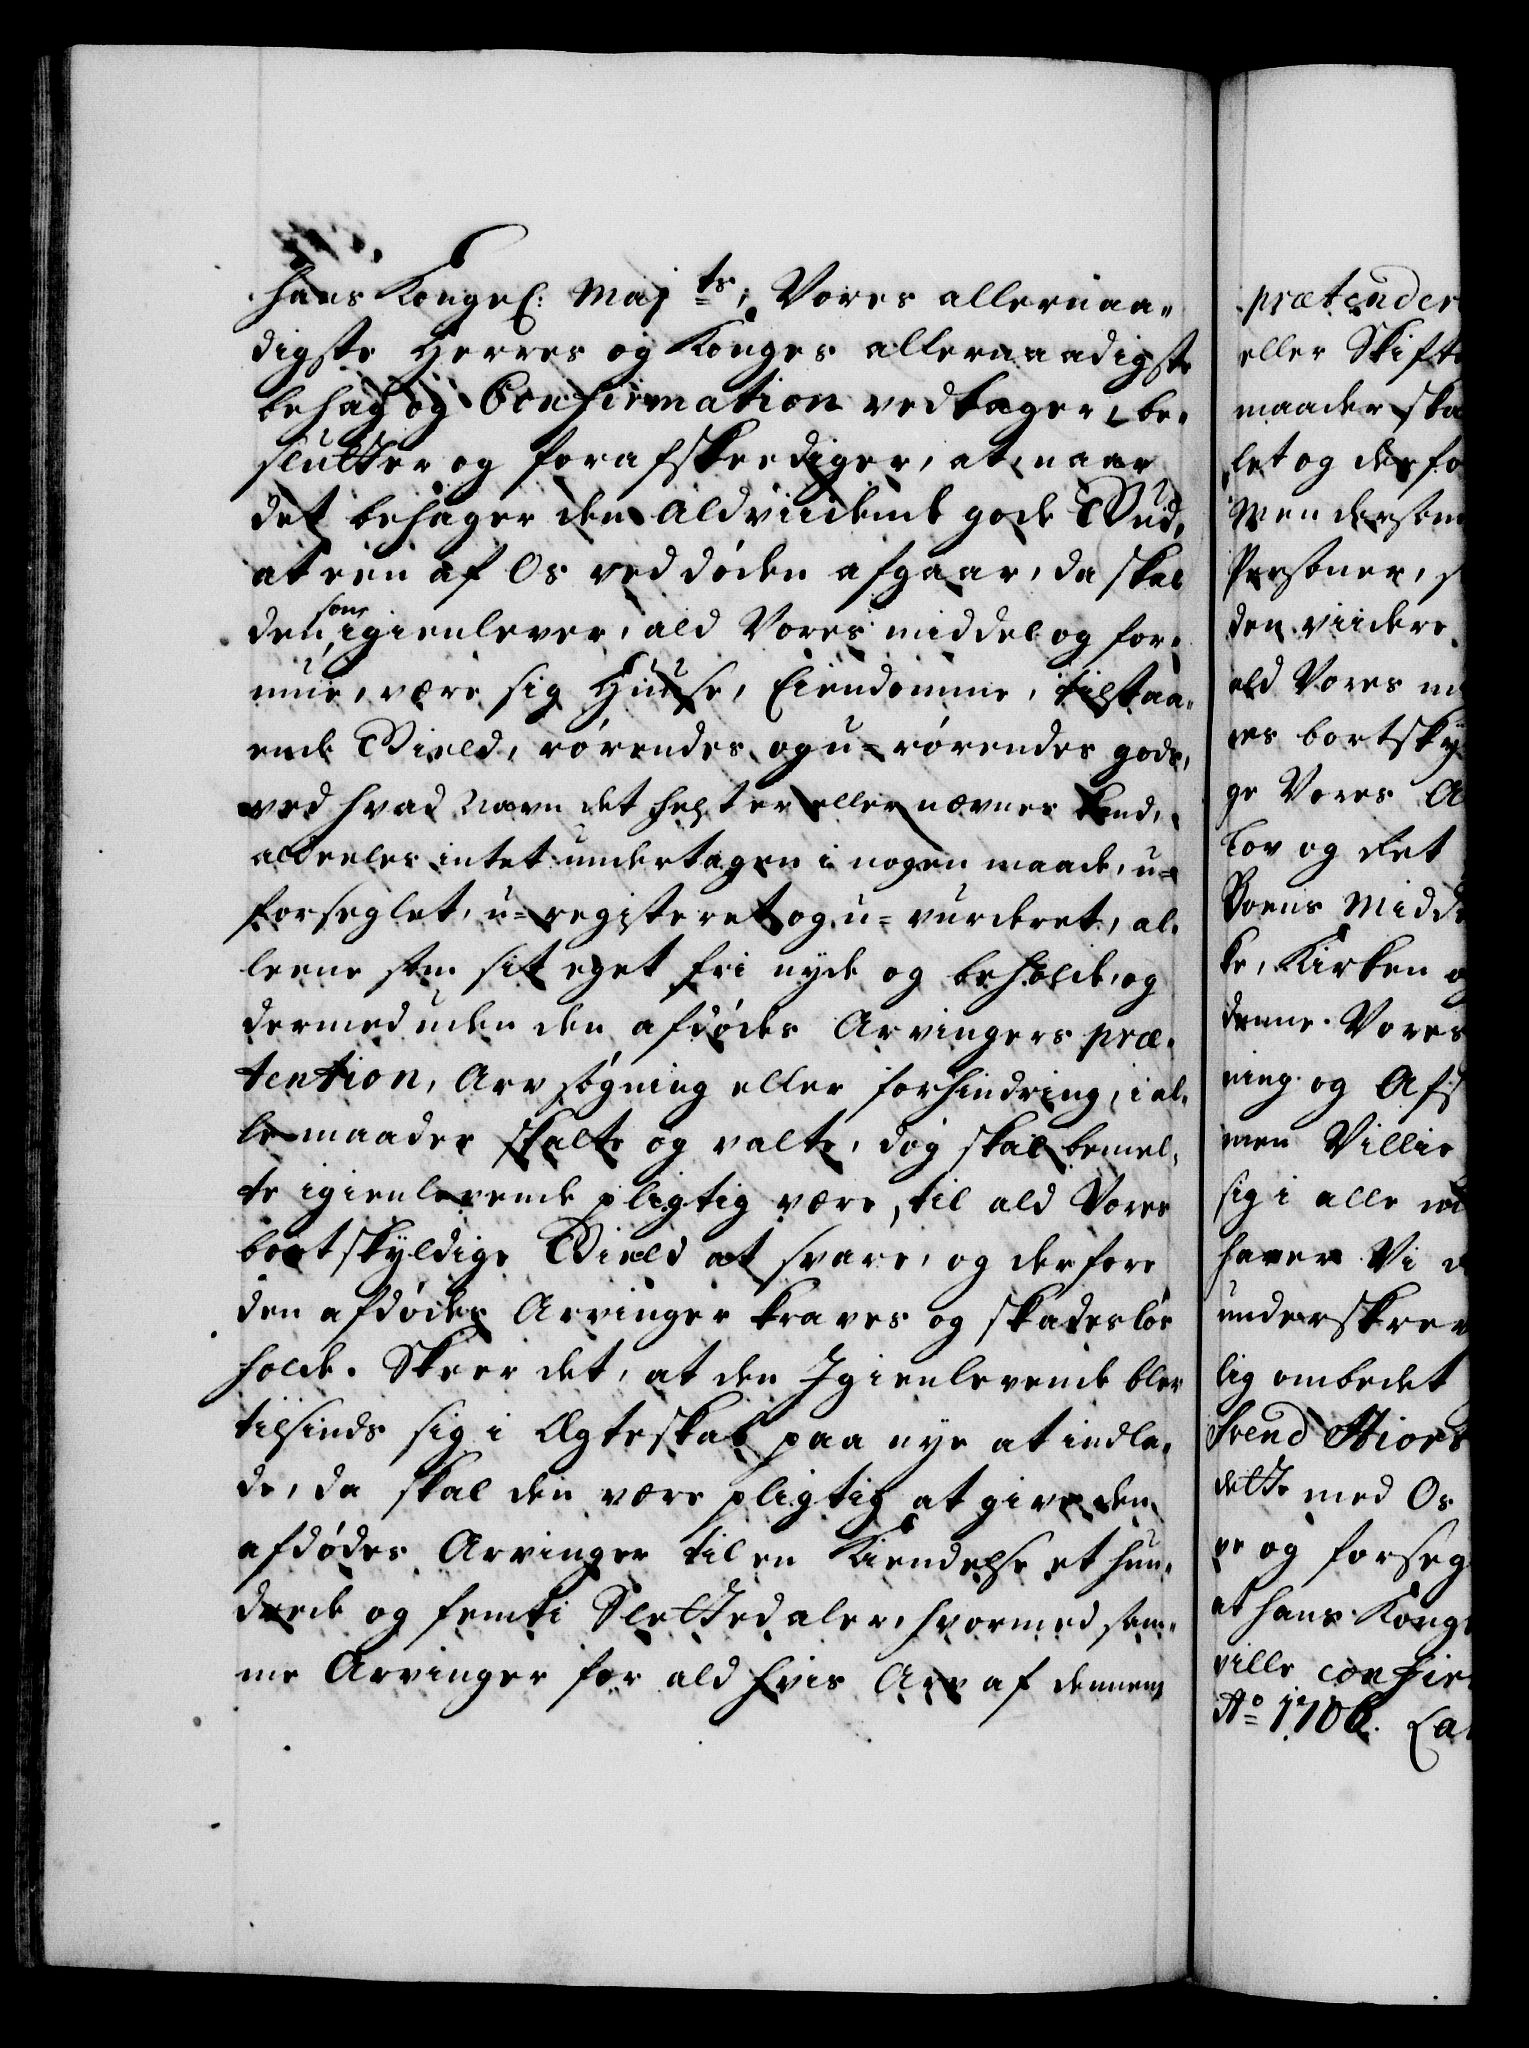 hans Kongel: Maj ts, Vores allernaa-
digste Herres og Konges allernaadigste
behag og Confirmation vedtager, be-
slutter og forafskeediger, at naar
det behager den Aldviidende gode Gud,
at een af Os ved døden afgaar, da skal
den som igienlever, ald Vores middel og for-
mue, være sig Huuse, Eiendomme, tilstaa-
ende Gield, rørendes og u-rørendes gods,
ved hvad Navn det helst er eller nævnes kand,
aldeeles intet undertagen i nogen maade, u-
forseglet, u-registeret og u-vurderet, al-
leene som sit eget fri nyde og beholde, og
dermed uden den afdødes Arvingers præ-
tention, Arv søgning eller forhindring, i al-
le maader skalte og valte, dog skal bemel-
te igienlevende pligtig være, til ald Vores
bortskyldige Gield at svare, og derfore
den afdødes Arvinger kraves og skadesløs
holde. Skeer det, at den Igienlevende blev
tilsinds sig i Ægteskab paa nye at indla-
de, da skal den være pligtig at give den
afdødes Arvinger til en Kiendelse et hun-
drede og femti Slettedaler, hvormed sam-
me Arvinger for ald hvis Arv af dennem
prætender
eller Skifte
maader ska
let og derfo
Men dersom
Personer, s
den viidere
ald Vores m
res bortsky
ge Vores A
Lov og det
Boens Midd
ke, Kirken o
denne Vores
ning og Afs
men Villie
sig i alle m
haver Vi d
underskrev
lig ombedet
Svend Hiort
dette med Os
ve og forseg
at hans Kong
ville confir
Ao 1706. La